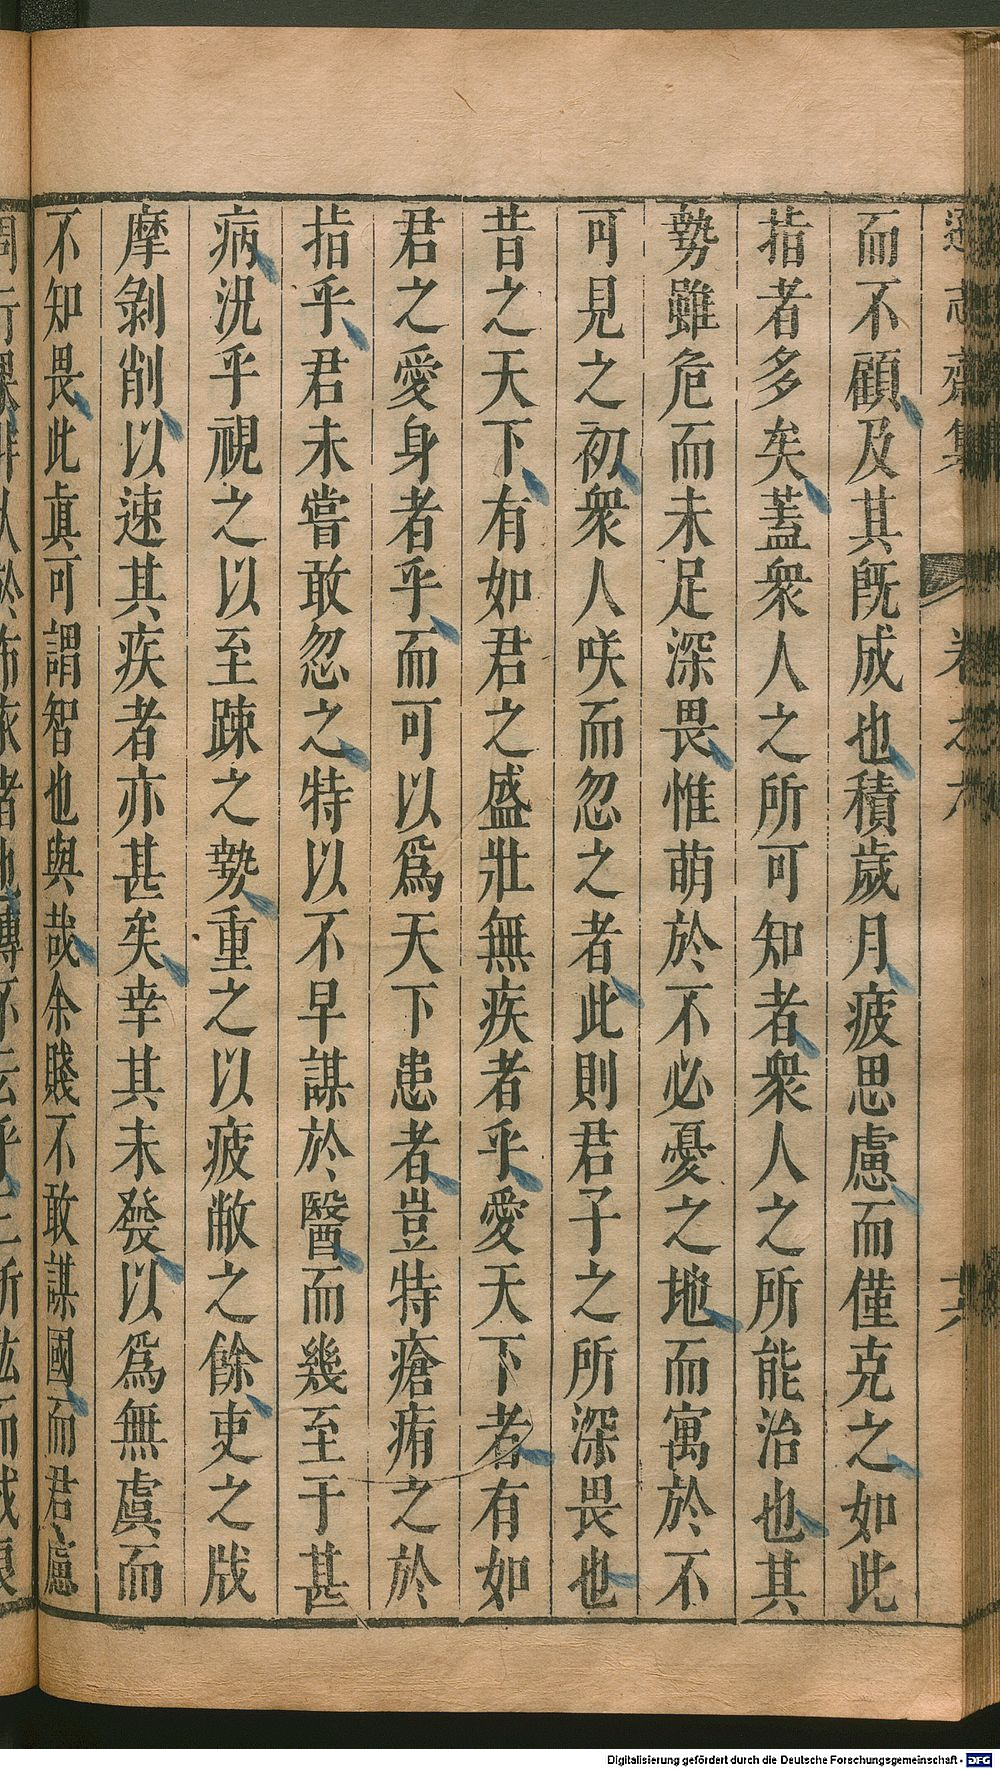 遜志齋集 卷之六
而不顧及其旣成也積歲月疲思慮而僅克之如此
指者多矣蓋衆人之所可知者衆人之所能治也其
勢雖危而未足深畏惟萌於不必憂之地而寓於不
可見之初衆人咲而忽之者此則君子之所深畏也
昔之天下有如君之盛壯無疾者乎愛天下者有如
君之愛身者乎而可以爲天下患者豈特瘡痏之於
指乎君未嘗敢忽之特以不早謀於醫而幾至于甚
病況乎視之以至踈之勢重之以疲敝之餘吏之戕
摩剝削以速其疾者亦甚矣幸其未發以爲無虞而
不知畏此眞可謂智也與哉余賤不敢謀國而君慮
Digitalisierung gefördert durch die Deutsche Forschungsgemeinschaft - DFG